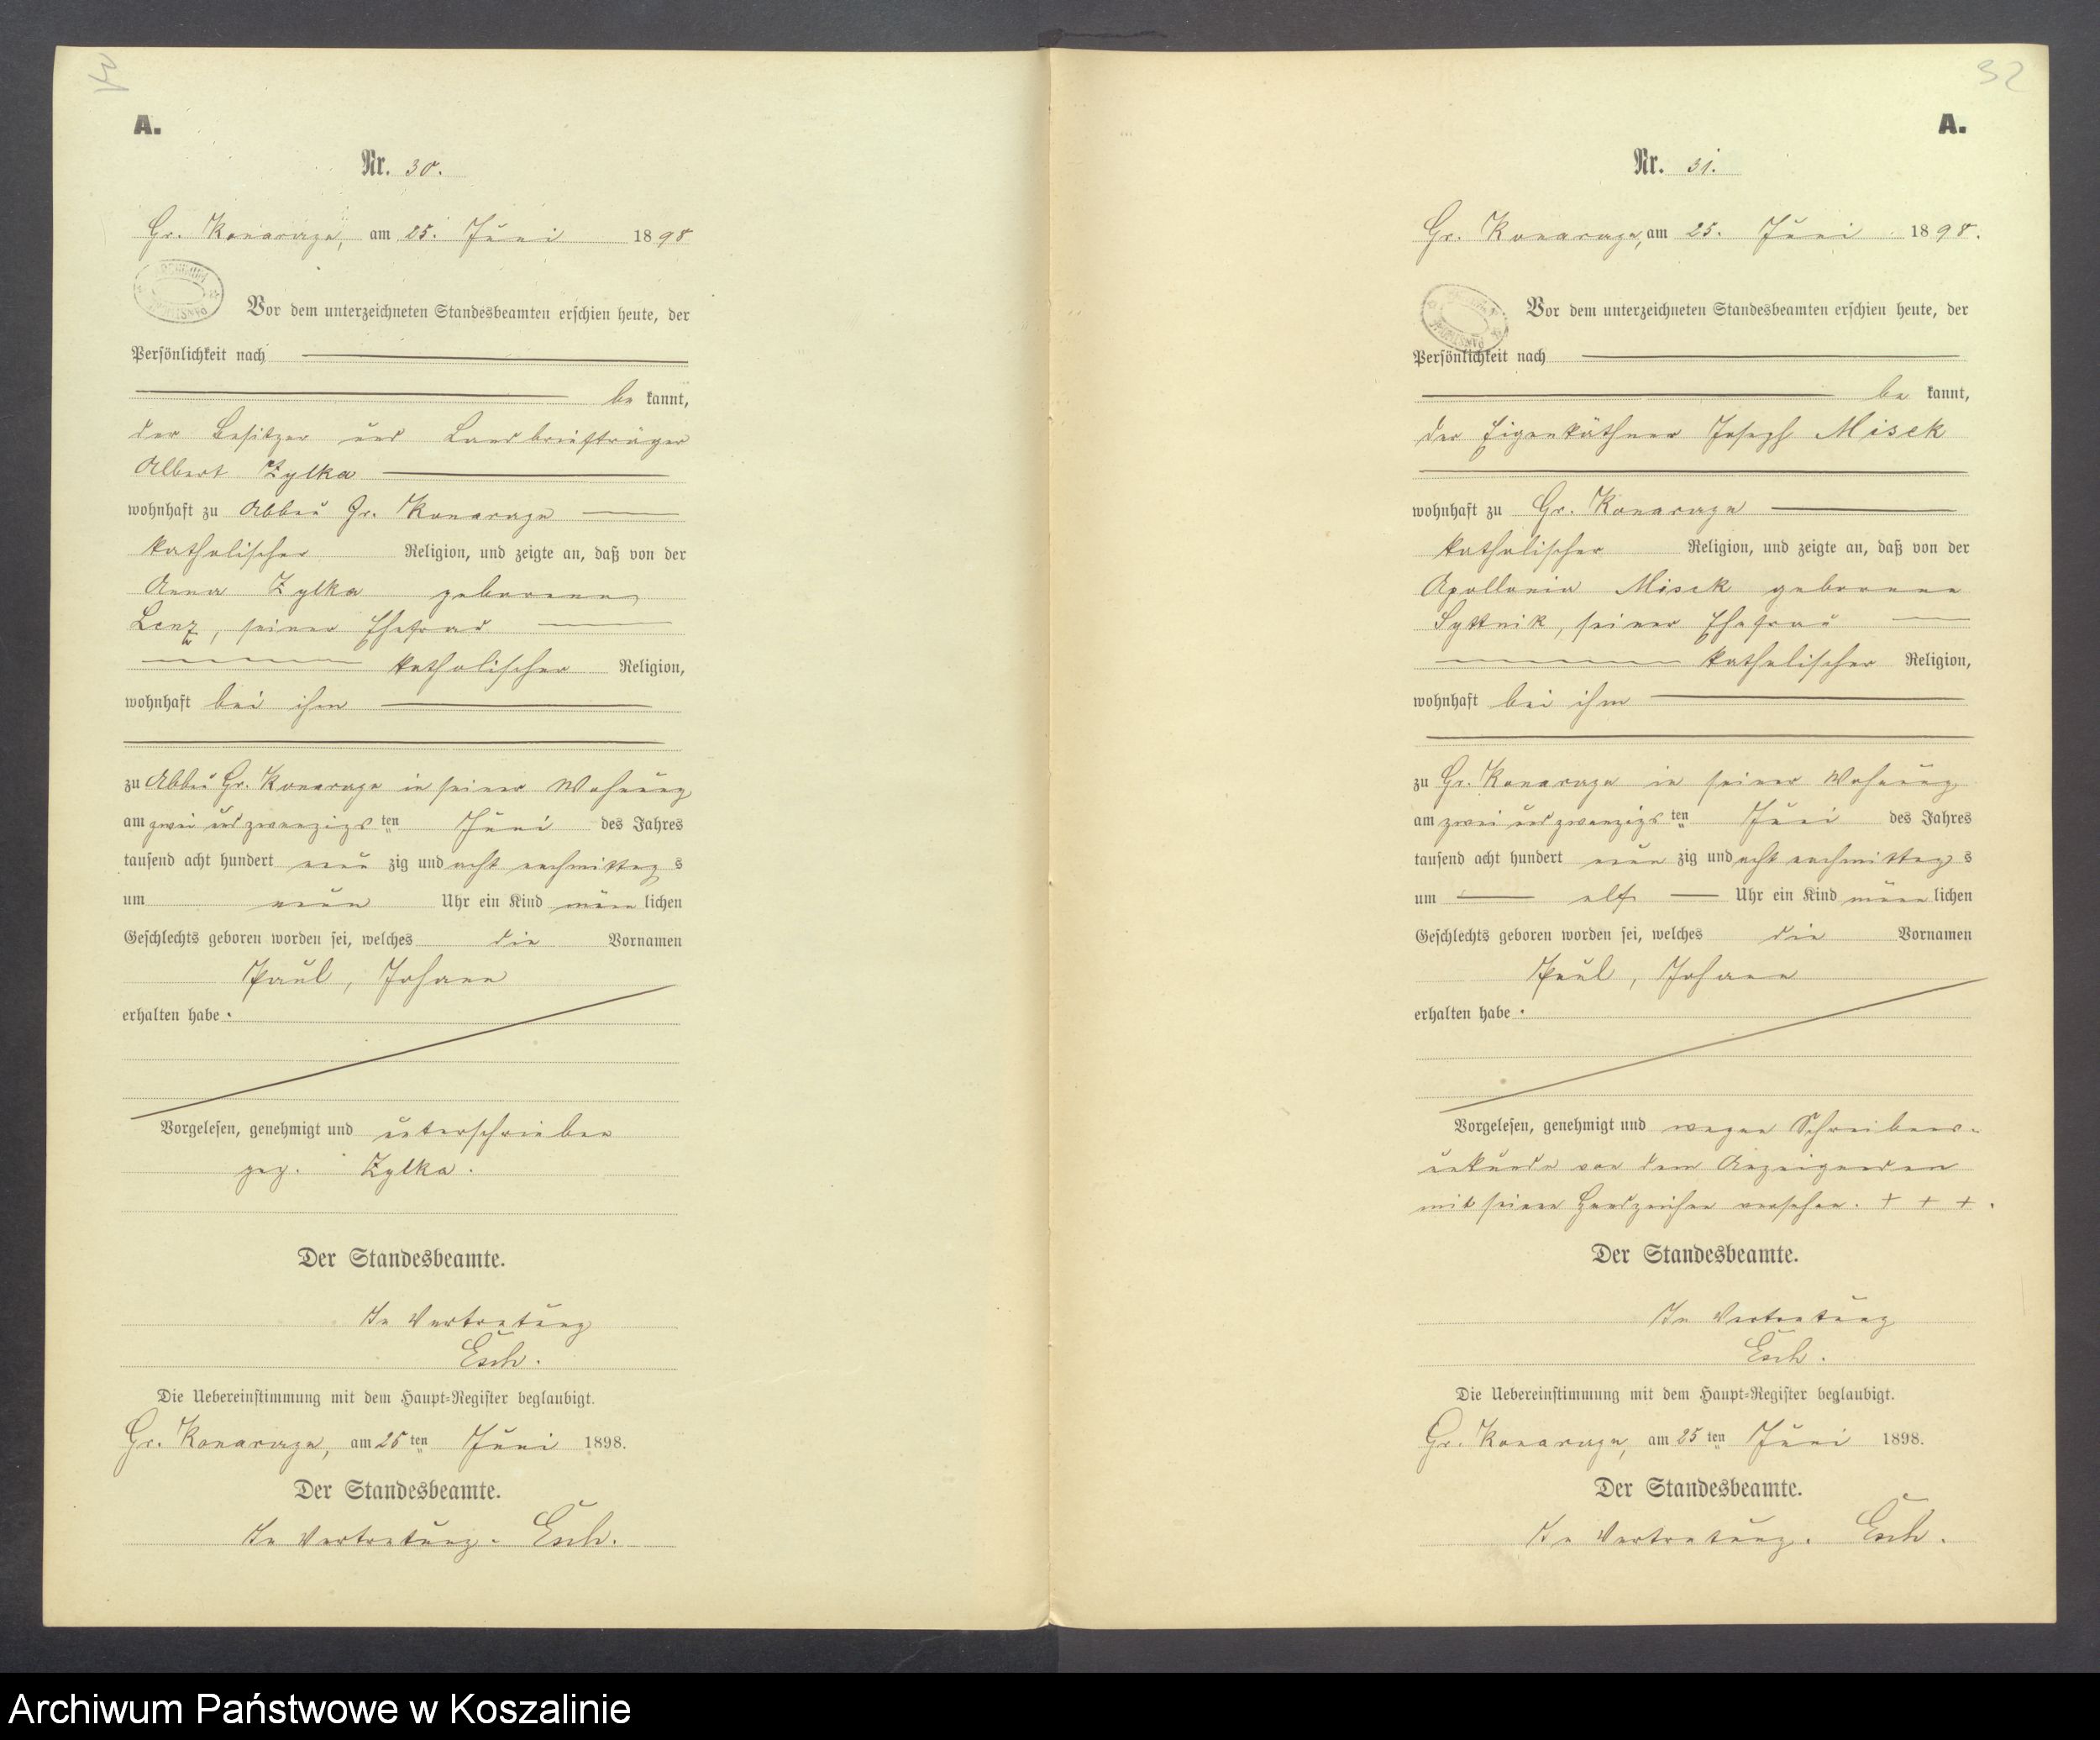 A.
Nr. 30.
Gr. Konarczyn, am 25. Juni 1898
Vor dem unterzeichneten Standesbeamten erschien heute, der
Persönlichkeit nach
be kannt,
der Besitzer und Landbriefträger
Albert Zylka
wohnhaft zu Abbau Gr. Konarczyn
katholischer Religion, und zeigte an, daß von der
Anna Zylka geborenen
Lenz, seiner Ehefrau
katholischer Religion,
wohnhaft bei ihm
zu Abbau Gr. Konarczyn in seiner Wohnung
am zwei und zwanzigs ten Juni des Jahres
tausend acht hundert neun zig und acht nachmittag s
um neun Uhr ein Kind männ lichen
Geschlechts geboren worden sei, welches die Vornamen
Paul, Johann
erhalten habe.
Vorgelesen, genehmigt und unterschrieben
gez. Zylka.
Der Standesbeamte.
In Vertretung
Esch.
Die Uebereinstimmung mit dem Haupt-Register beglaubigt.
Gr. Konarczyn, am 25 ten Juni 1898.
Der Standesbeamte.
In Vertretung. Esch.
32
A.
Nr. 31.
Gr. Konarczyn, am 25. Juni 1898.
Vor dem unterzeichneten Standesbeamten erschien heute, der
Persönlichkeit nach
be kannt,
der Eigenkäthner Joseph Misek
wohnhaft zu Gr. Konarczyn
katholischer Religion, und zeigte an, daß von der
Apollonia Misek geborene
Syttnik, seiner Ehefrau
katholischer Religion,
wohnhaft bei ihm
zu Gr. Konarczyn in seiner Wohnung
am zwei und zwanzigs ten Juni des Jahres
tausend acht hundert neun zig und acht nachmittag s
um elf Uhr ein Kind männ lichen
Geschlechts geboren worden sei, welches die Vornamen
Paul, Johann
erhalten habe.
Vorgelesen, genehmigt und wegen Schreibens-
unkunde von dem Anzeigenden
mit seinem Handzeichen versehen. + + +.
Der Standesbeamte.
In Vertretung
Esch.
Die Uebereinstimmung mit dem Haupt-Register beglaubigt.
Gr. Konarczyn, am 25 ten Juni 1898.
Der Standesbeamte.
In Vertretung. Esch.
Archiwum Państwowe w Koszalinie